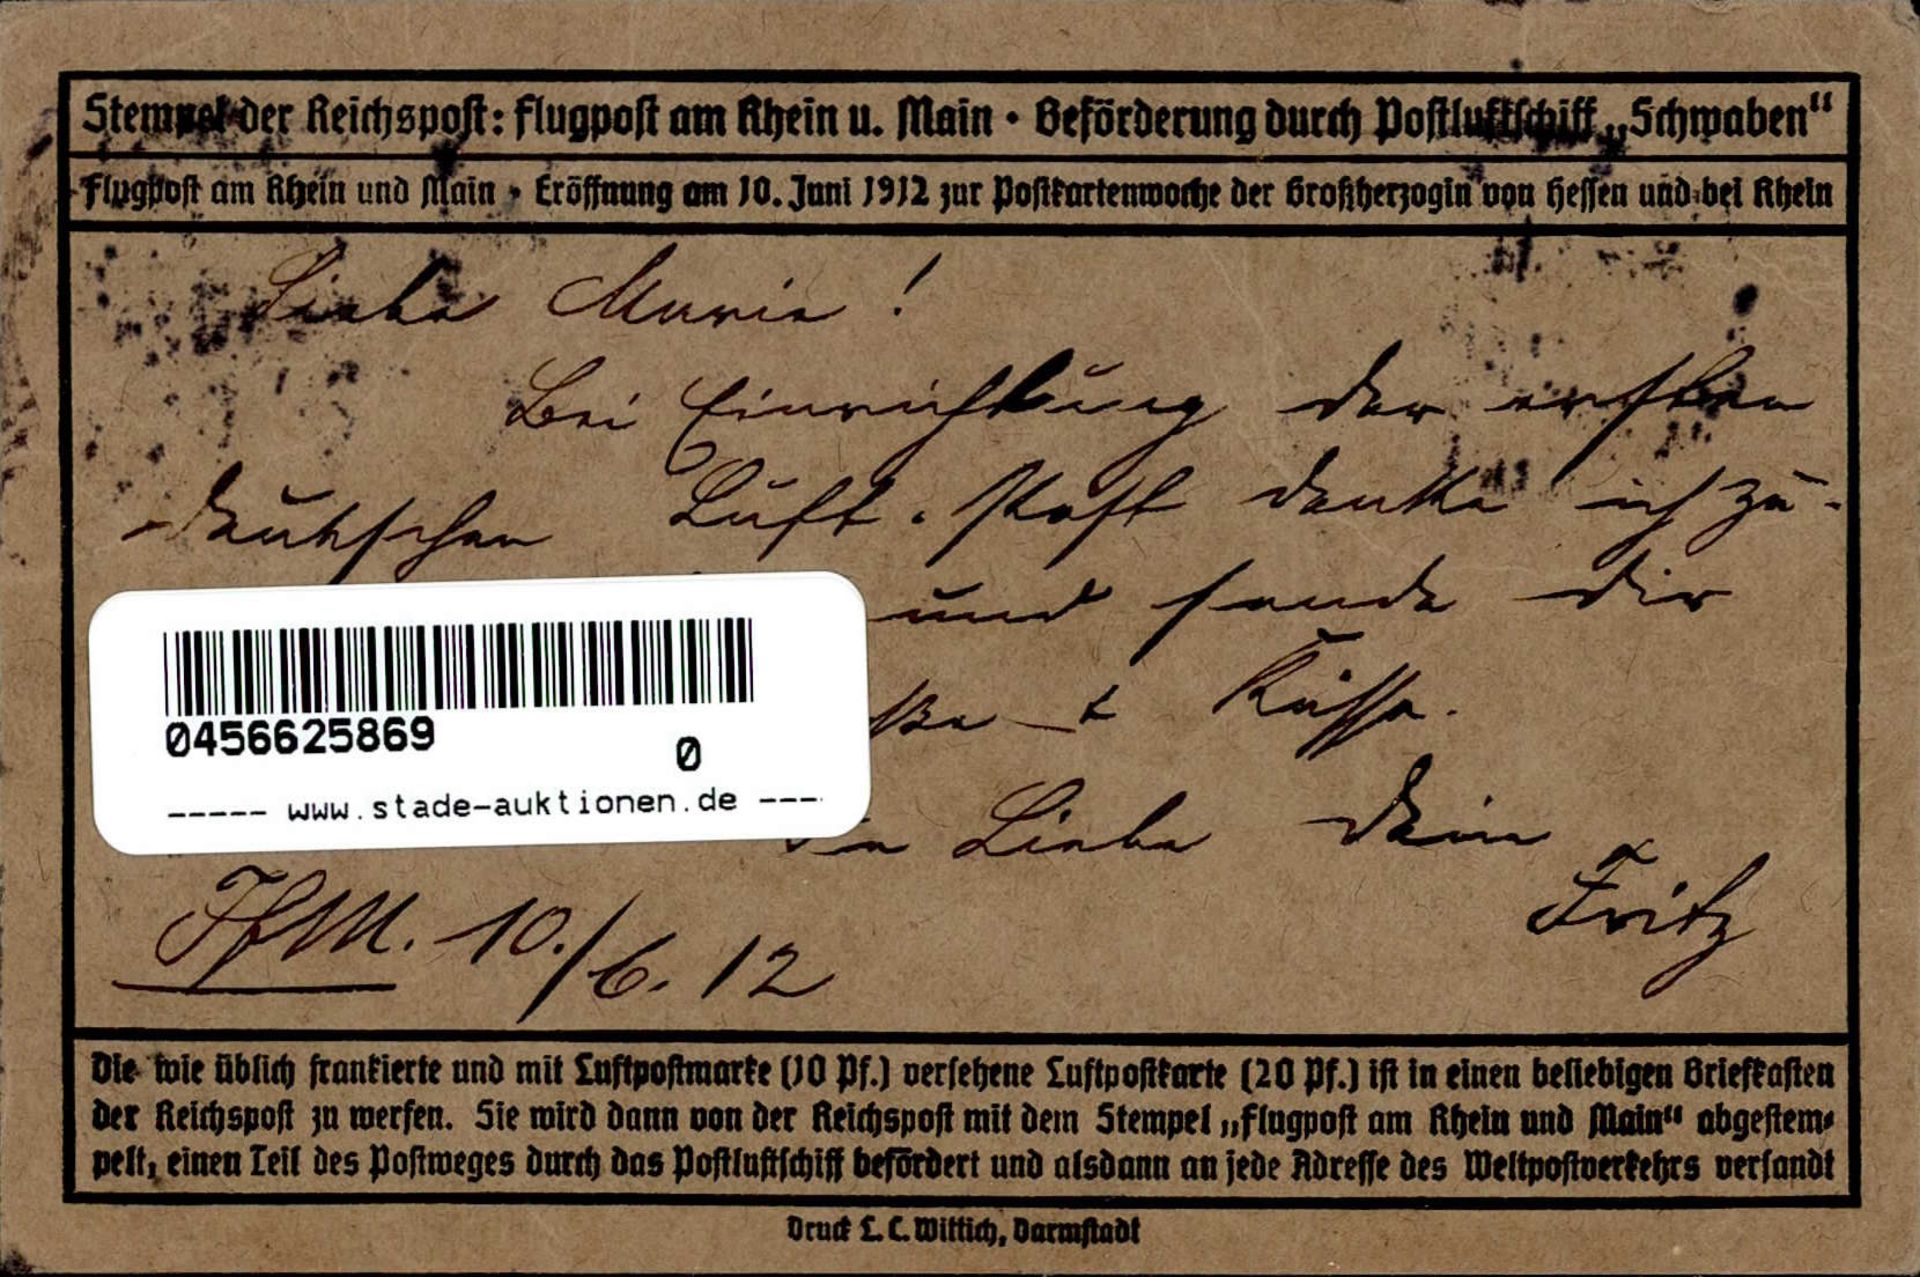 Stempel der Reichspost: Flugpost am Rhein u. Main · Beförderung durch Postluftschiff „Schwaben“
Flugpost am Rhein und Main · Eröffnung am 10. Juni 1912 zur Postkartenwoche der Großherzogin von Hessen und bei Rhein
Liebe Marie!
Bei Einrichtung der ersten
deutschen Luft-Post denke ich zu-
und sende dir
ße + Küsse.
Liebe Dein
Fritz
FfM. 10./6. 12
0456625869
0
----- www.stade-auktionen.de ----
Die wie üblich frankierte und mit Luftpostmarke (10 Pf.) versehene Luftpostkarte (20 Pf.) ist in einen beliebigen Briefkasten
der Reichspost zu werfen. Sie wird dann von der Reichspost mit dem Stempel „Flugpost am Rhein und Main“ abgestem-
pelt, einen Teil des Postweges durch das Postluftschiff befördert und alsdann an jede Adresse des Weltpostverkehrs versandt
Druck L. C. Wittich, Darmstadt